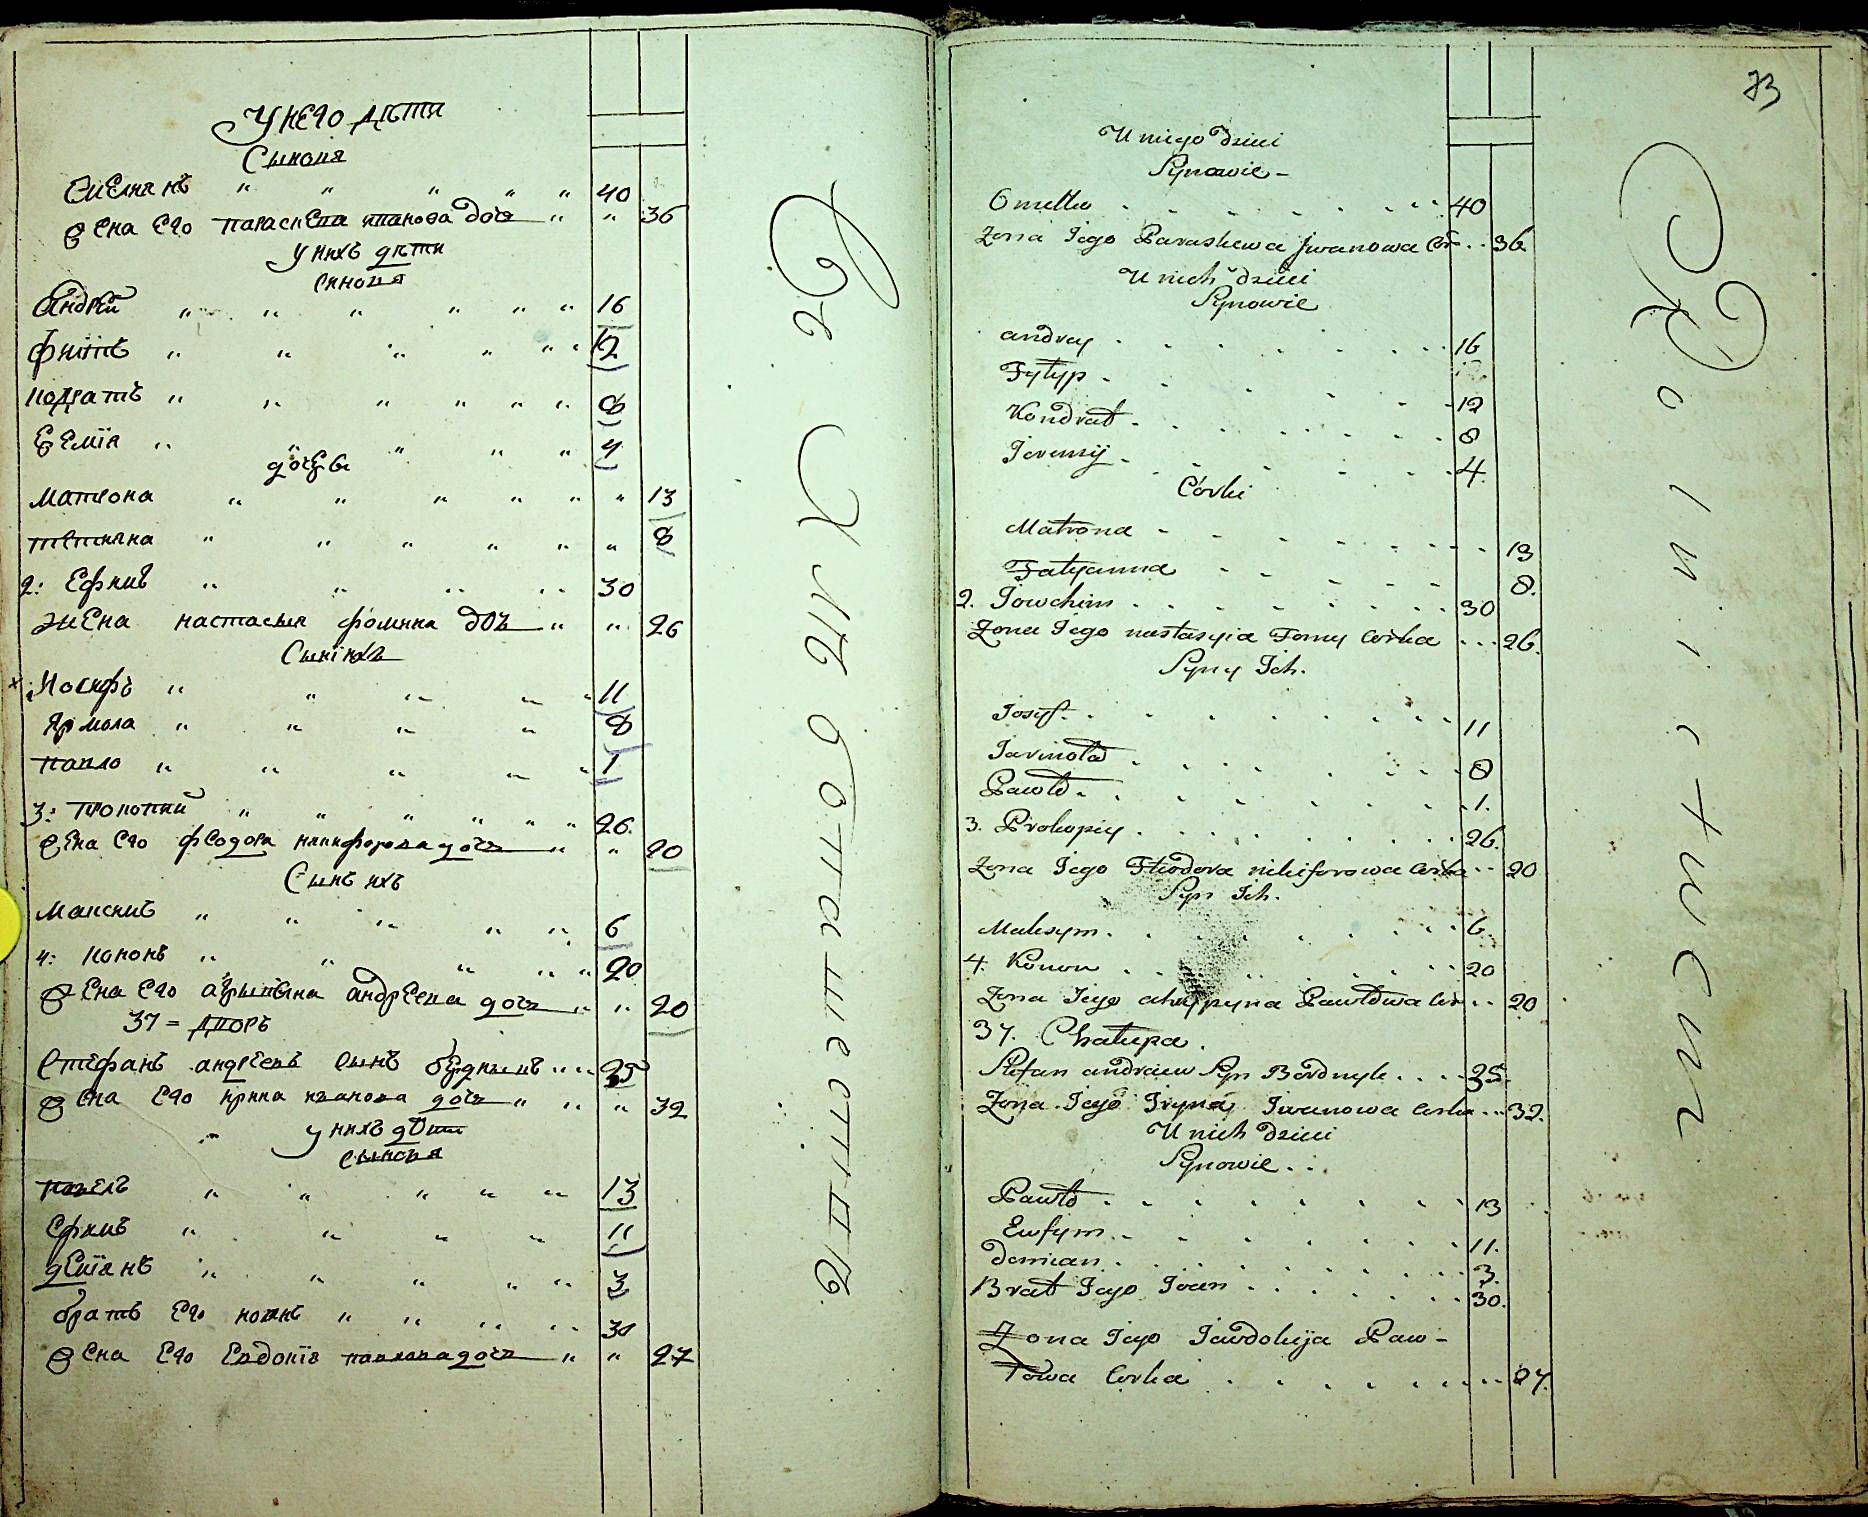 У него дѣти
Сыновя
Омелянъ " " " " " 40
Жена Его параскева иванова дочь " " 36
у нихъ дѣти
синовя
Андрей " " " " " " 16
Филипъ " " " " " " 12
Кодратъ " " " " " " 8
Еремія " " " " " 4
дочери
Матрона " " " " " " 13
татияна " " " " " " 8
2: Ефимъ " " " " 30
жена настасия фомина дочь " " 26
Сыни ихъ
Иосифъ " " " " " 11
Ярмола " " " " 8
павло " " " " " 1
3: прокопий " " " " " " 26.
жена Его феодора никифорова дочь " " 20
Сынъ ихъ
Максимъ " " " " " 6
4: Кононъ " " " " " 20
жена Его агрипина андреева дочь " " 20
37 = Дворъ
Стефанъ андреевъ сынъ " " 25
жена Его ирина иванова дочь " " " 32
у нихъ дѣти
сыновя
павелъ " " " " " 13
Ефимъ " " " " 11
деміянъ " " " " " 3
братъ Его иоанъ " " " " 30
жена Его Евдокія павлова дочь " " 27
Съ Хлѣбопашества
73
U niego dzieci
Synowie -
Omelko . . . . . . . 40
Żona Iego Paraskewa Jwanowa Cor . . 36
U nich dzieci
Synowie
andrey . . . . . . . 16
Fylyp . . . . . . 12
Kondrat . . . . . . . 8
Jeremij . . . . . . 4.
Córki
Matrona - . . . . . . 13
Tatyanna . . . . . . 8.
2. Jowchim . . . . . . . 30
Żona Iego nastasyia Fomy Corka . . . 26.
Syny Ich.
Iosyf . . . . . . . 11
Jarmoła . . . . . . 8
Pawło . . . . . . . 1.
3. Prokopiy . . . . . . . 26.
Żona Iego Fteodora nikiforowa Corka . . 20
Syn Ich.
Maksym . . . . . . 6
4. Konon . . . . . . . 20
Żona Iego ahrypyna Pawłowa Cor . . 20
37. Chałupa.
Stefan andraiew Syn Bordnyk . . . . 25.
Żona Iego Iryna Iwanowa Corka . . . 32.
U nich dzieci
Synowie . . .
Pawło . . . . . . . 13
Ewfym . . . . . . . 11.
Demian . . . . . . . 3.
Brat Iego Ioan . . . . . . 30.
Żona Iego Jawdokija Paw-
łowa Corka . . . . . . . 27.
Rolnictwem